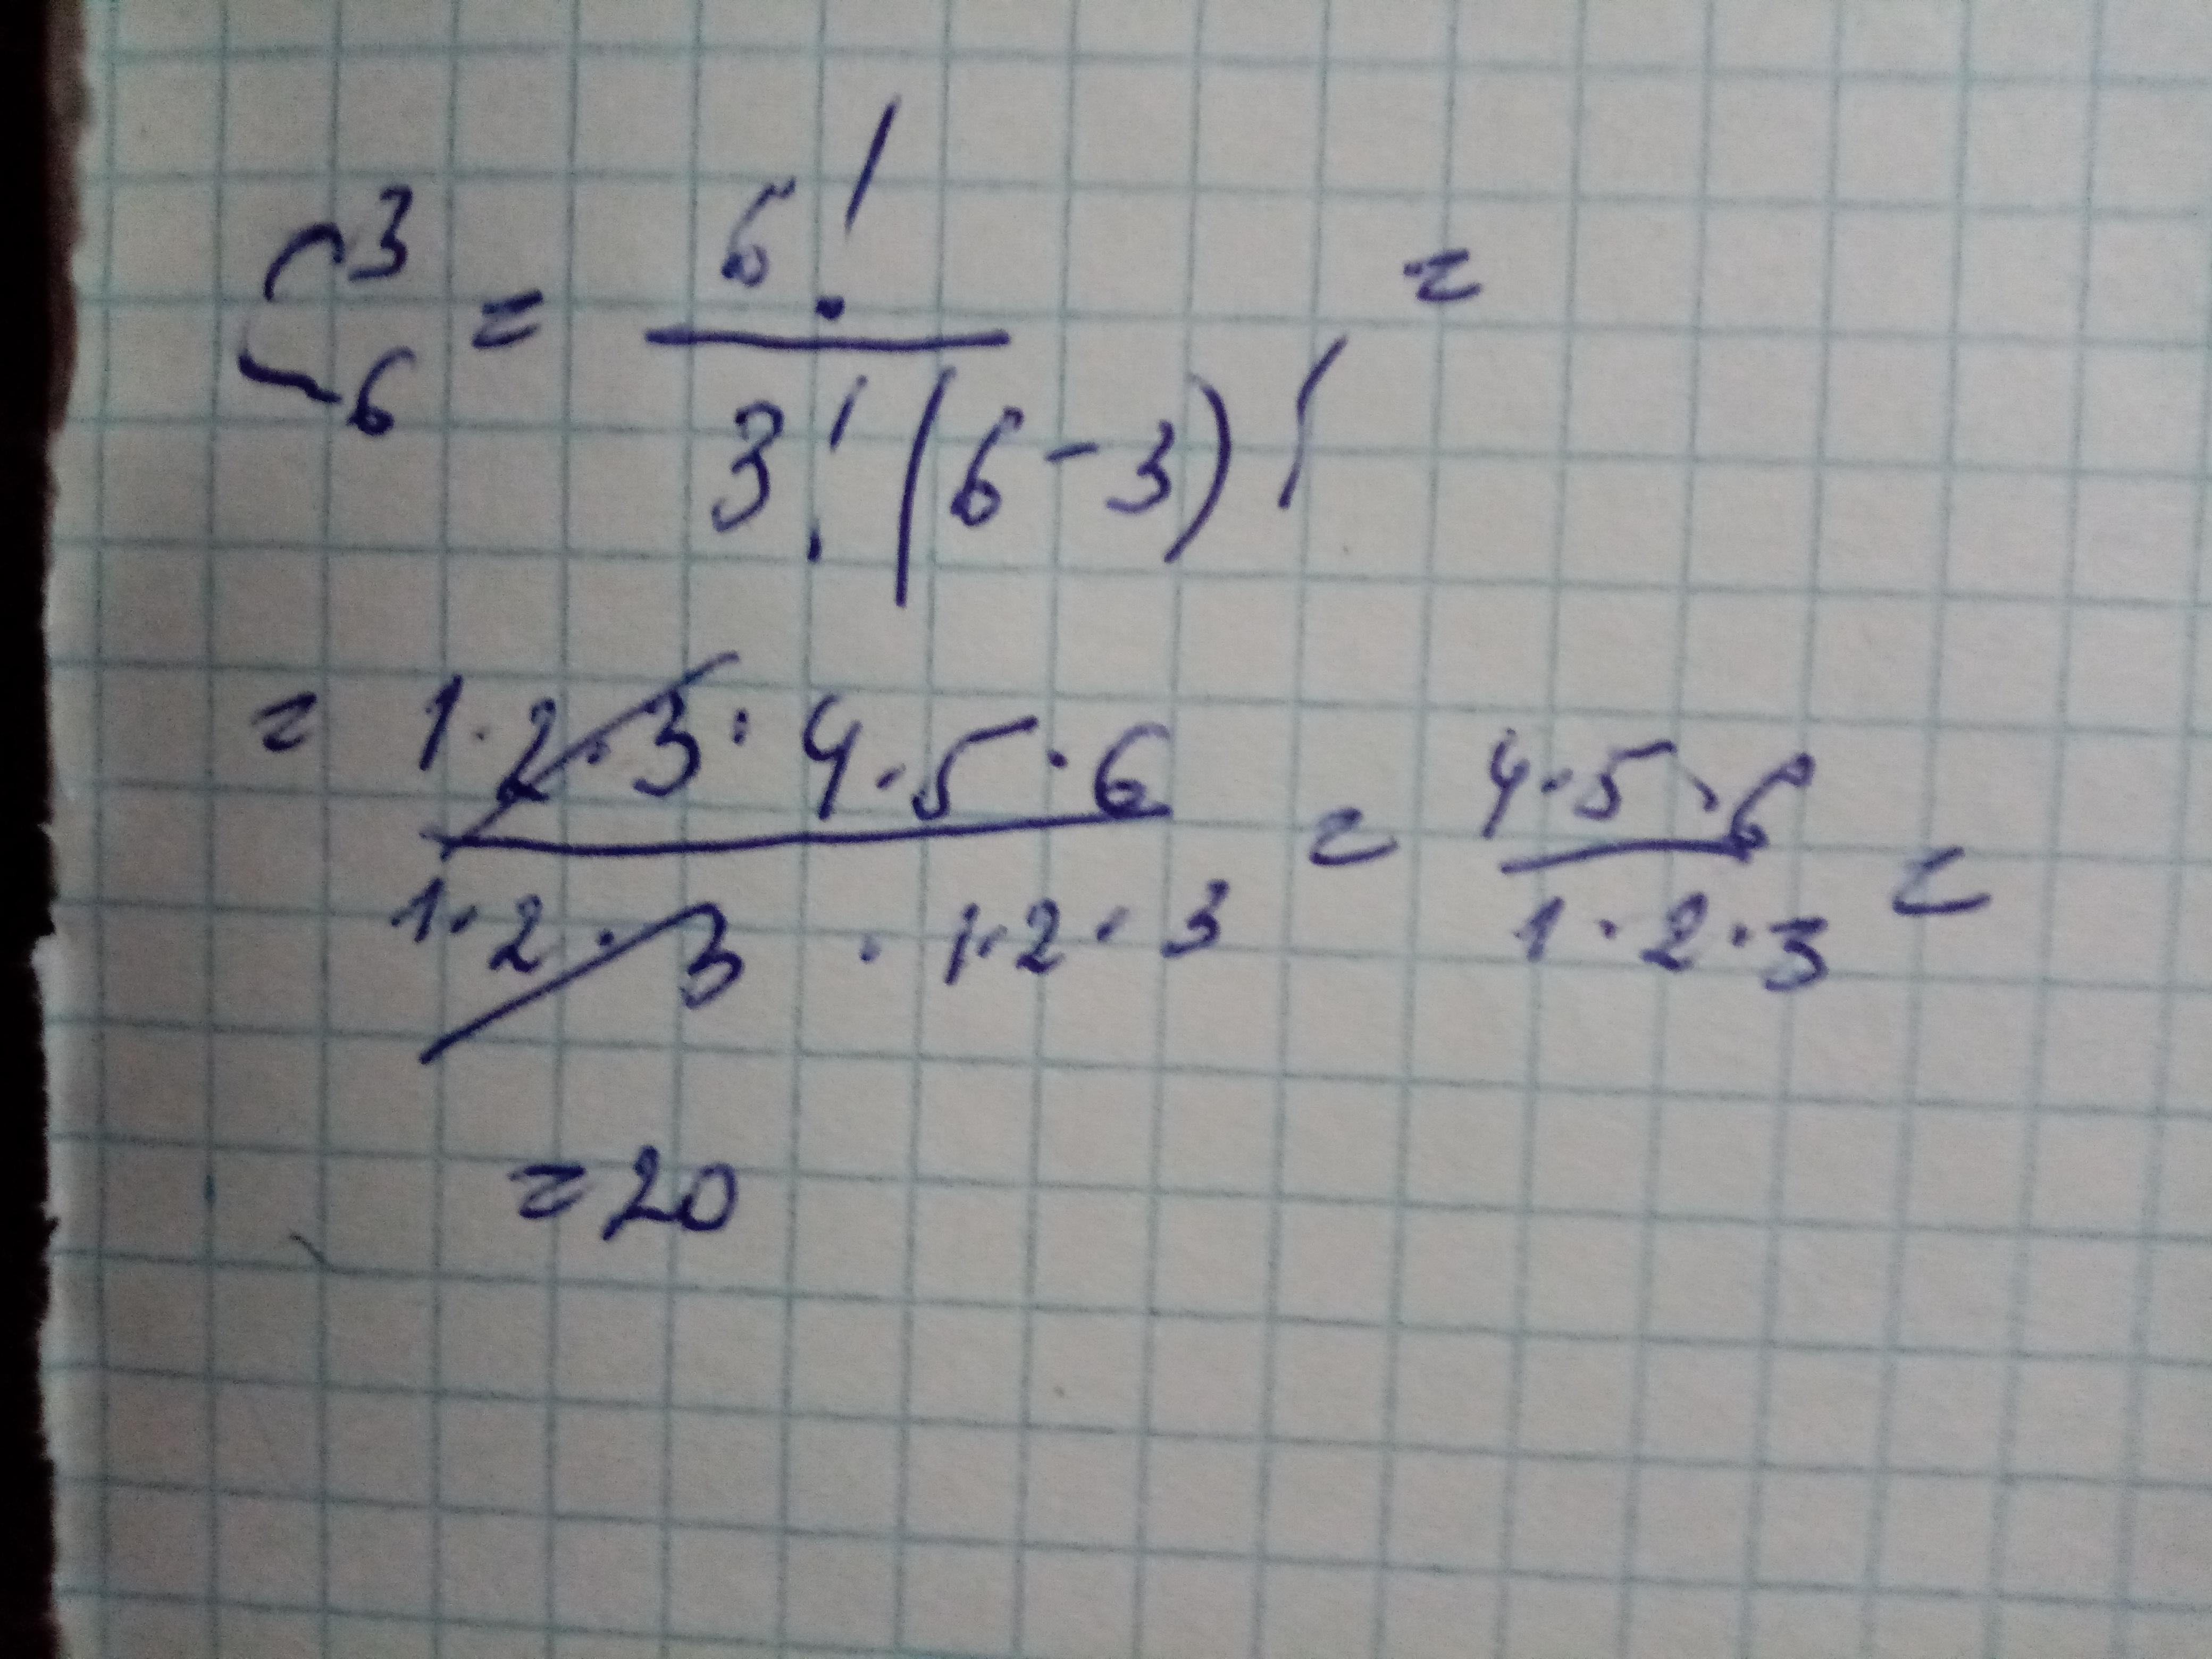 C₆³ = 6! / 3!(6-3)! =
= 1·2·3·4·5·6 / 1·2·3·1·2·3 = 4·5·6 / 1·2·3 =
= 20